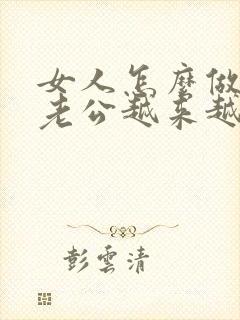 女人怎麼做
老公越來越
彭雲清